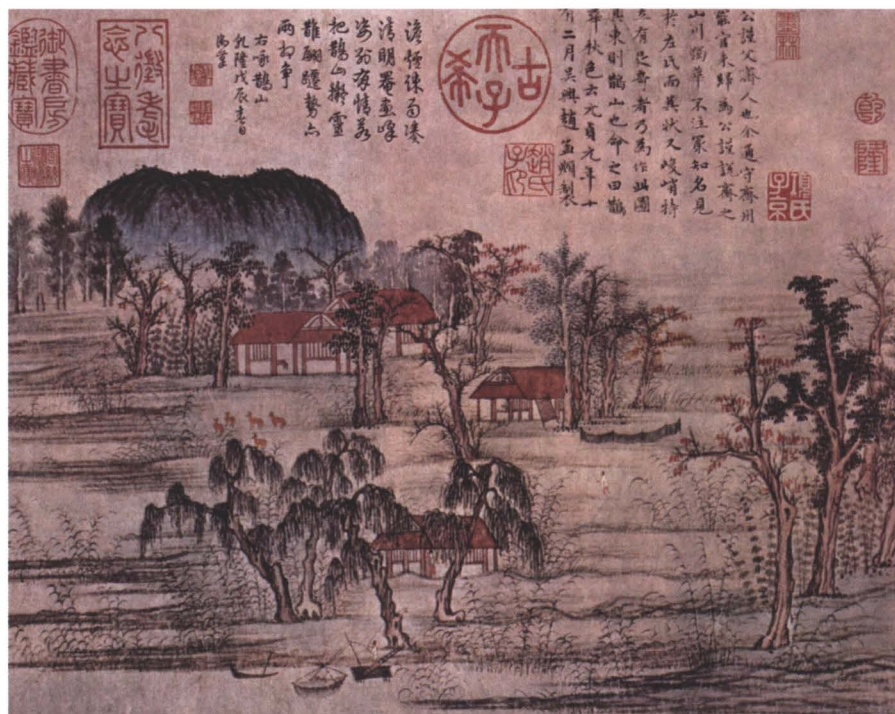 公謹父齊人也余通守齊州
罷官來歸為公謹說齊之
山川獨華不注冣知名見
於左氏而其狀又峻峭特
立有足奇者乃為作此圖
其東則鵲山也命之曰鵲
華秋色云元貞元年十
有二月吳興趙孟頫製
趙氏子昂
項氏子京
古希天子
澹煙疎雨湊
清明罨畫峰
姿別有情若
把鵲山擬靈
鵲翩躚勢亦
兩相爭
右詠鵲山
乾隆戊辰春日
御筆
八徵耄念之寶
御書房鑑藏寶